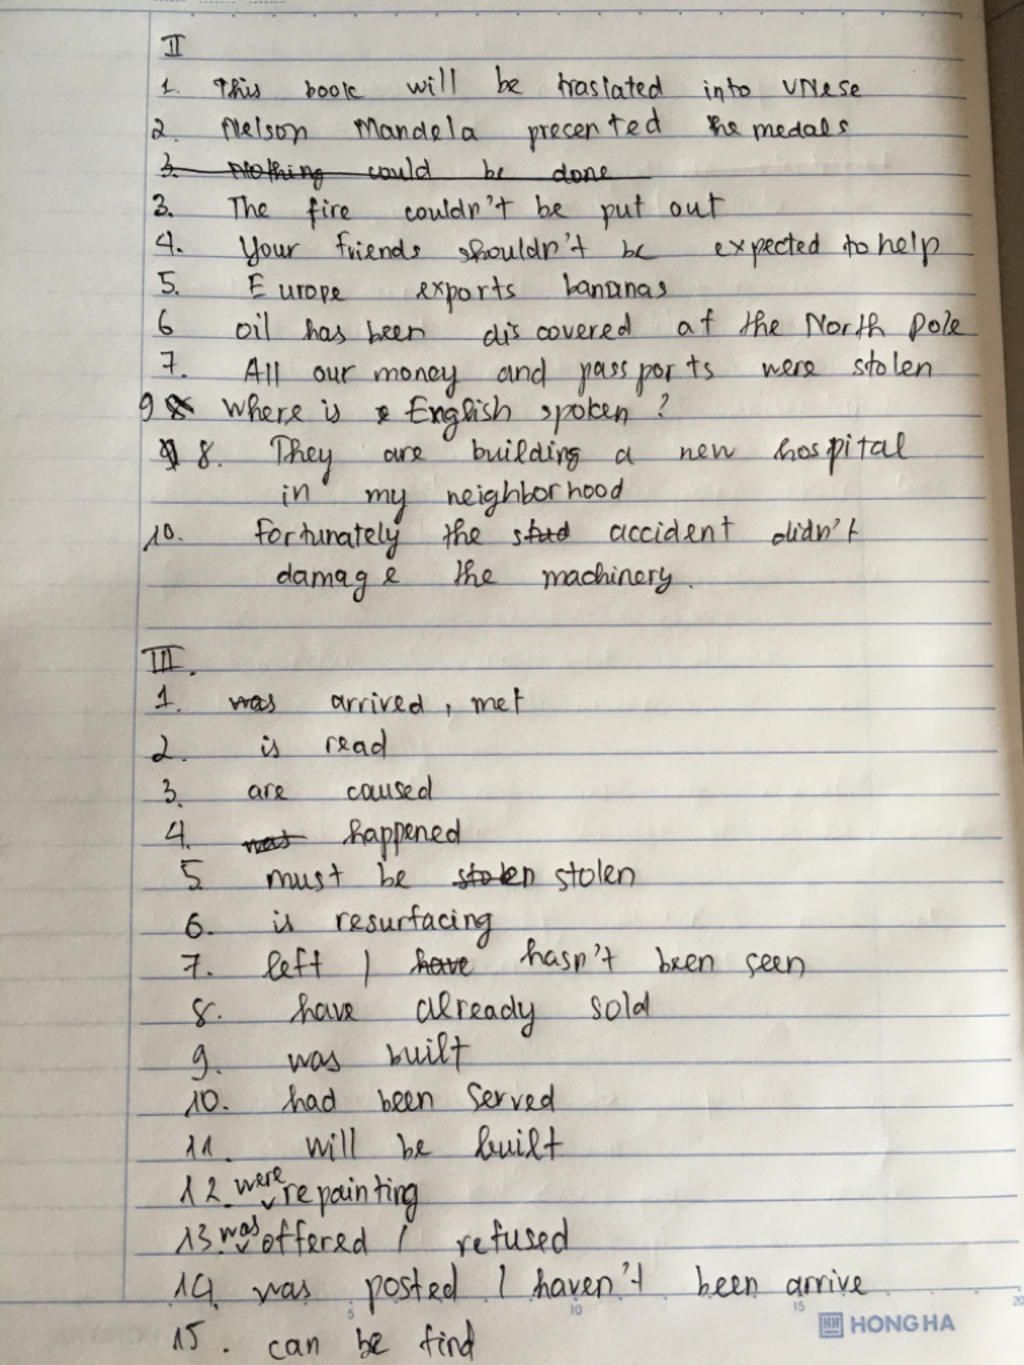 II
1. This book will be traslated into VNese
2. Nelson Mandela precented the medals
3. Nothing could be done
3. The fire couldn't be put out
4. Your friends shouldn't be expected to help
5. Europe exports bananas
6 oil has been discovered at the North Pole
7. All our money and passports were stolen
9 8 Where is English spoken ?
8. They are building a new hospital
in my neighborhood
10. fortunately the stud accident didn't
damage the machinery.
III.
1. was arrived, met
2. is read
3. are caused
4. was happened
5 must be stolen stolen
6. is resurfacing
7. left / have hasn't been seen
8. have already sold
9. was built
10. had been served
11. will be built
12. were repainting
13 was offered / refused
14. was posted / haven't been arrive
15. can be find
5 10 15 20
HONG HA